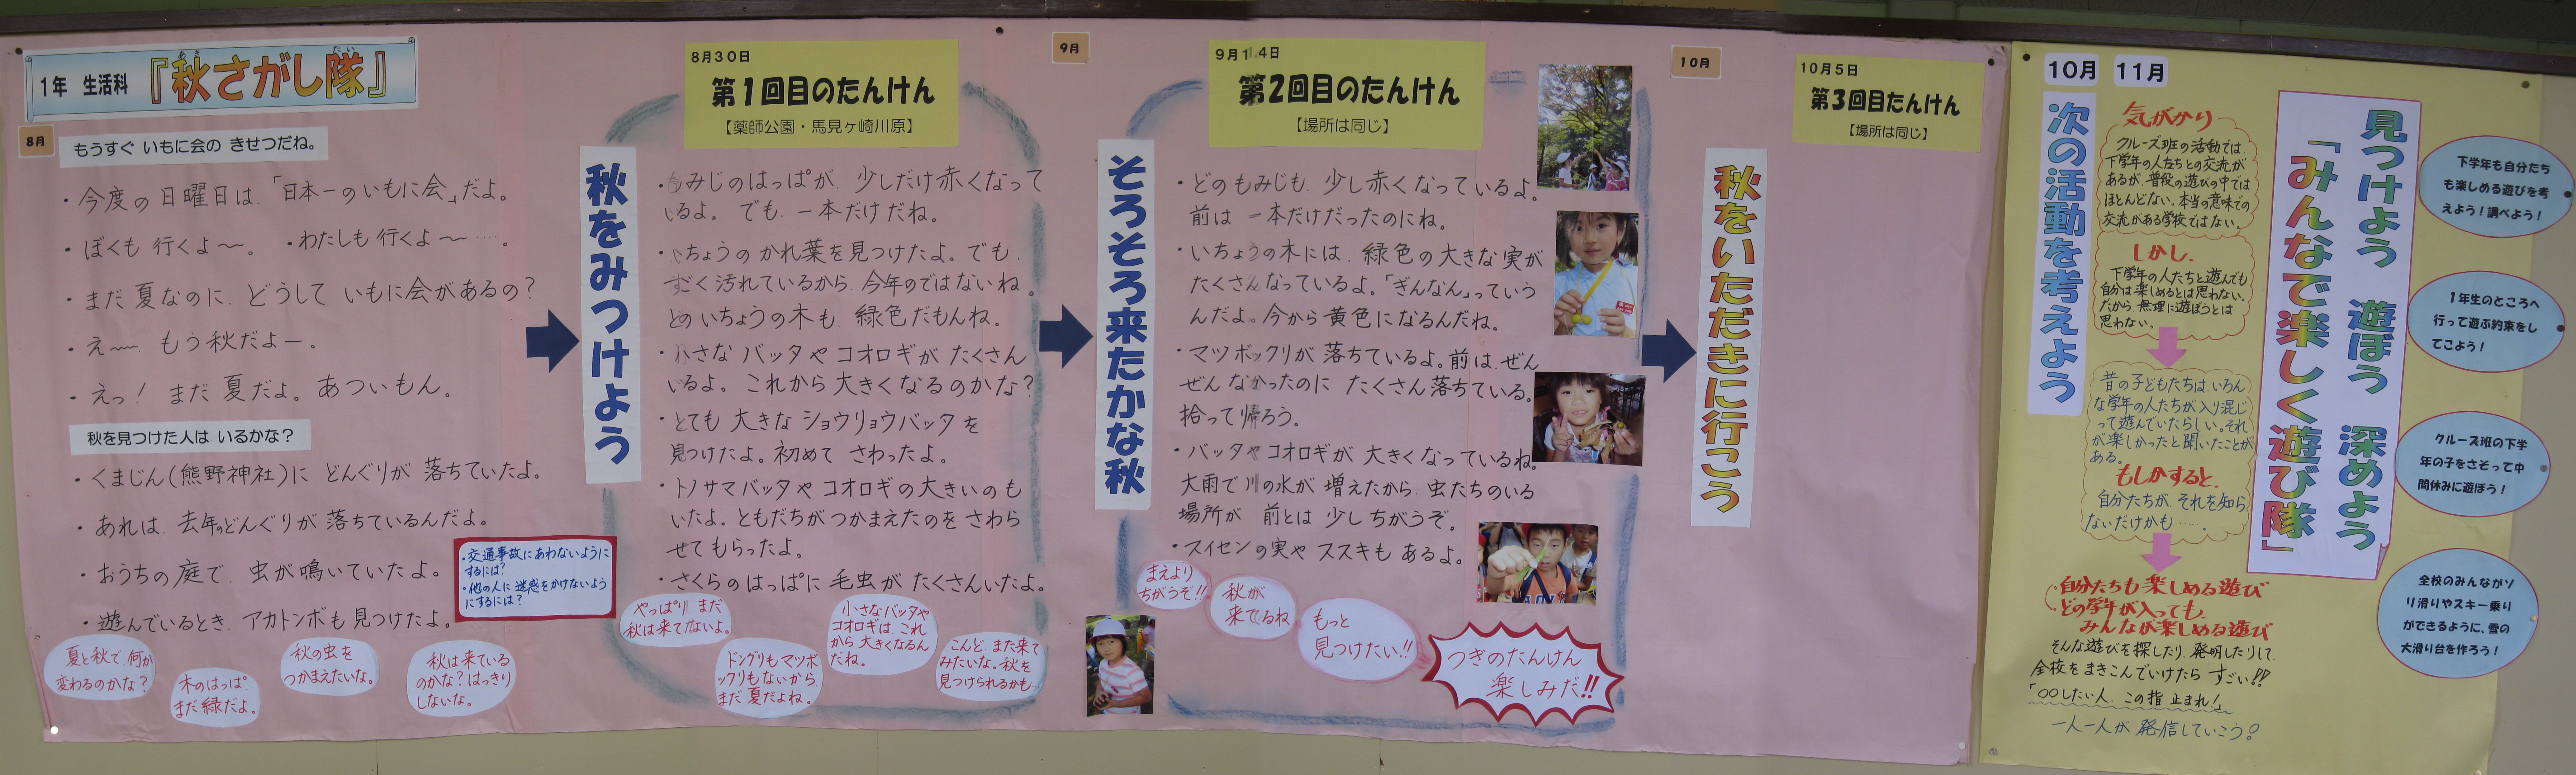 1年 生活科 『秋さがし隊』
8月
もうすぐ いもに会の きせつだね。
・今度の日曜日は、「日本一のいもに会」だよ。
・ぼくも 行くよ〜。 ・わたしも 行くよ〜……。
・まだ 夏なのに、どうして いもに会があるの?
・え〜、もう秋だよー。
・えっ! まだ 夏だよ。あついもん。
秋を見つけた人は いるかな?
・くまじん(熊野神社)に どんぐりが 落ちていたよ。
・あれは、去年のどんぐりが 落ちているんだよ。
・おうちの庭で、虫が鳴いていたよ。
・遊んでいるとき、アカトンボも見つけたよ。
・交通事故にあわないように
するには?
・他の人に迷惑をかけないよう
にするには?
夏と秋で、何が
変わるのかな?
木のはっぱ、
まだ緑だよ。
秋の虫を
つかまえたいな。
秋は来ている
のかな?はっきり
しないな。
秋をみつけよう
8月30日
第1回目のたんけん
【薬師公園・馬見ヶ崎川原】
・もみじのはっぱが、少しだけ赤くなって
いるよ。でも、一本だけだね。
・いちょうの かれ葉を見つけたよ。でも、
すごく汚れているから、今年のではないね。
どのいちょうの木も、緑色だもんね。
・小さな バッタや コオロギが たくさん
いるよ。これから大きくなるのかな?
・とても 大きな ショウリョウバッタを
見つけたよ。初めて さわったよ。
・トノサマバッタや コオロギの大きいのも
いたよ。ともだちがつかまえたのを さわら
せてもらったよ。
・さくらのはっぱに 毛虫が たくさんいたよ。
やっぱり、まだ
秋は来てないよ。
ドングリもマツボ
ックリもないから、
まだ 夏だよね。
小さなバッタや
コオロギは、これ
から大きくなるん
だね。
こんど、また来て
みたいな。秋を
見つけられるかも…
9月
そろそろ来たかな秋
9月14日
第2回目のたんけん
【場所は同じ】
・どのもみじも、少し赤くなっているよ。
前は 一本だけだったのにね。
・いちょうの木には、緑色の大きな実が
たくさんなっているよ。「ぎんなん」っていう
んだよ。今から 黄色になるんだね。
・マツボックリが 落ちているよ。前は、ぜん
ぜん なかったのに たくさん落ちている。
拾って帰ろう。
・バッタやコオロギが 大きくなっているね。
大雨で川の水が 増えたから、虫たちのいる
場所が 前とは 少しちがうぞ。
・スイセンの実や ススキも あるよ。
まえより
ちがうぞ!!
秋が
来てるね
もっと
見つけたい!!
つぎのたんけん
楽しみだ!!
10月
秋をいただきに行こう
10月5日
第3回目たんけん
【場所は同じ】
10月 11月
次の活動を考えよう
気がかり
クルーズ班の活動では、
下学年の人たちとの交流が
あるが、普段の遊びの中では
ほとんどない。本当の意味での
交流がある学校ではない。
しかし、
下学年の人たちと遊んでも
自分は楽しめるとは思わない。
だから、無理に遊ぼうとは
思わない。
昔の子どもたちは、いろん
な学年の人たちが入り混じ
って遊んでいたらしい。それ
が楽しかったと聞いたことが
ある。
もしかすると、
自分たちが、それを知ら
ないだけかも……。
自分たちも楽しめる遊び
どの学年が入っても、
みんなが楽しめる遊び
そんな遊びを探したり、発明したりして、
全校をまきこんでいけたら すごい!!
「○○したい人、この指止まれ!」
一人一人が 発信していこう!
見つけよう 遊ぼう 深めよう
「みんなで楽しく遊び隊」
下学年も自分たち
も楽しめる遊びを考
えよう!調べよう!
1年生のところへ
行って遊ぶ約束をし
てこよう!
クルーズ班の下学
年の子をさそって中
間休みに遊ぼう!
全校のみんながソ
リ滑りやスキー乗り
ができるように、雪の
大滑り台を作ろう!